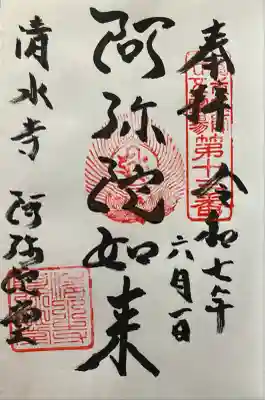 奉拝
令和七年
六月一日
阿弥陀如来
清水寺
阿弥陀堂